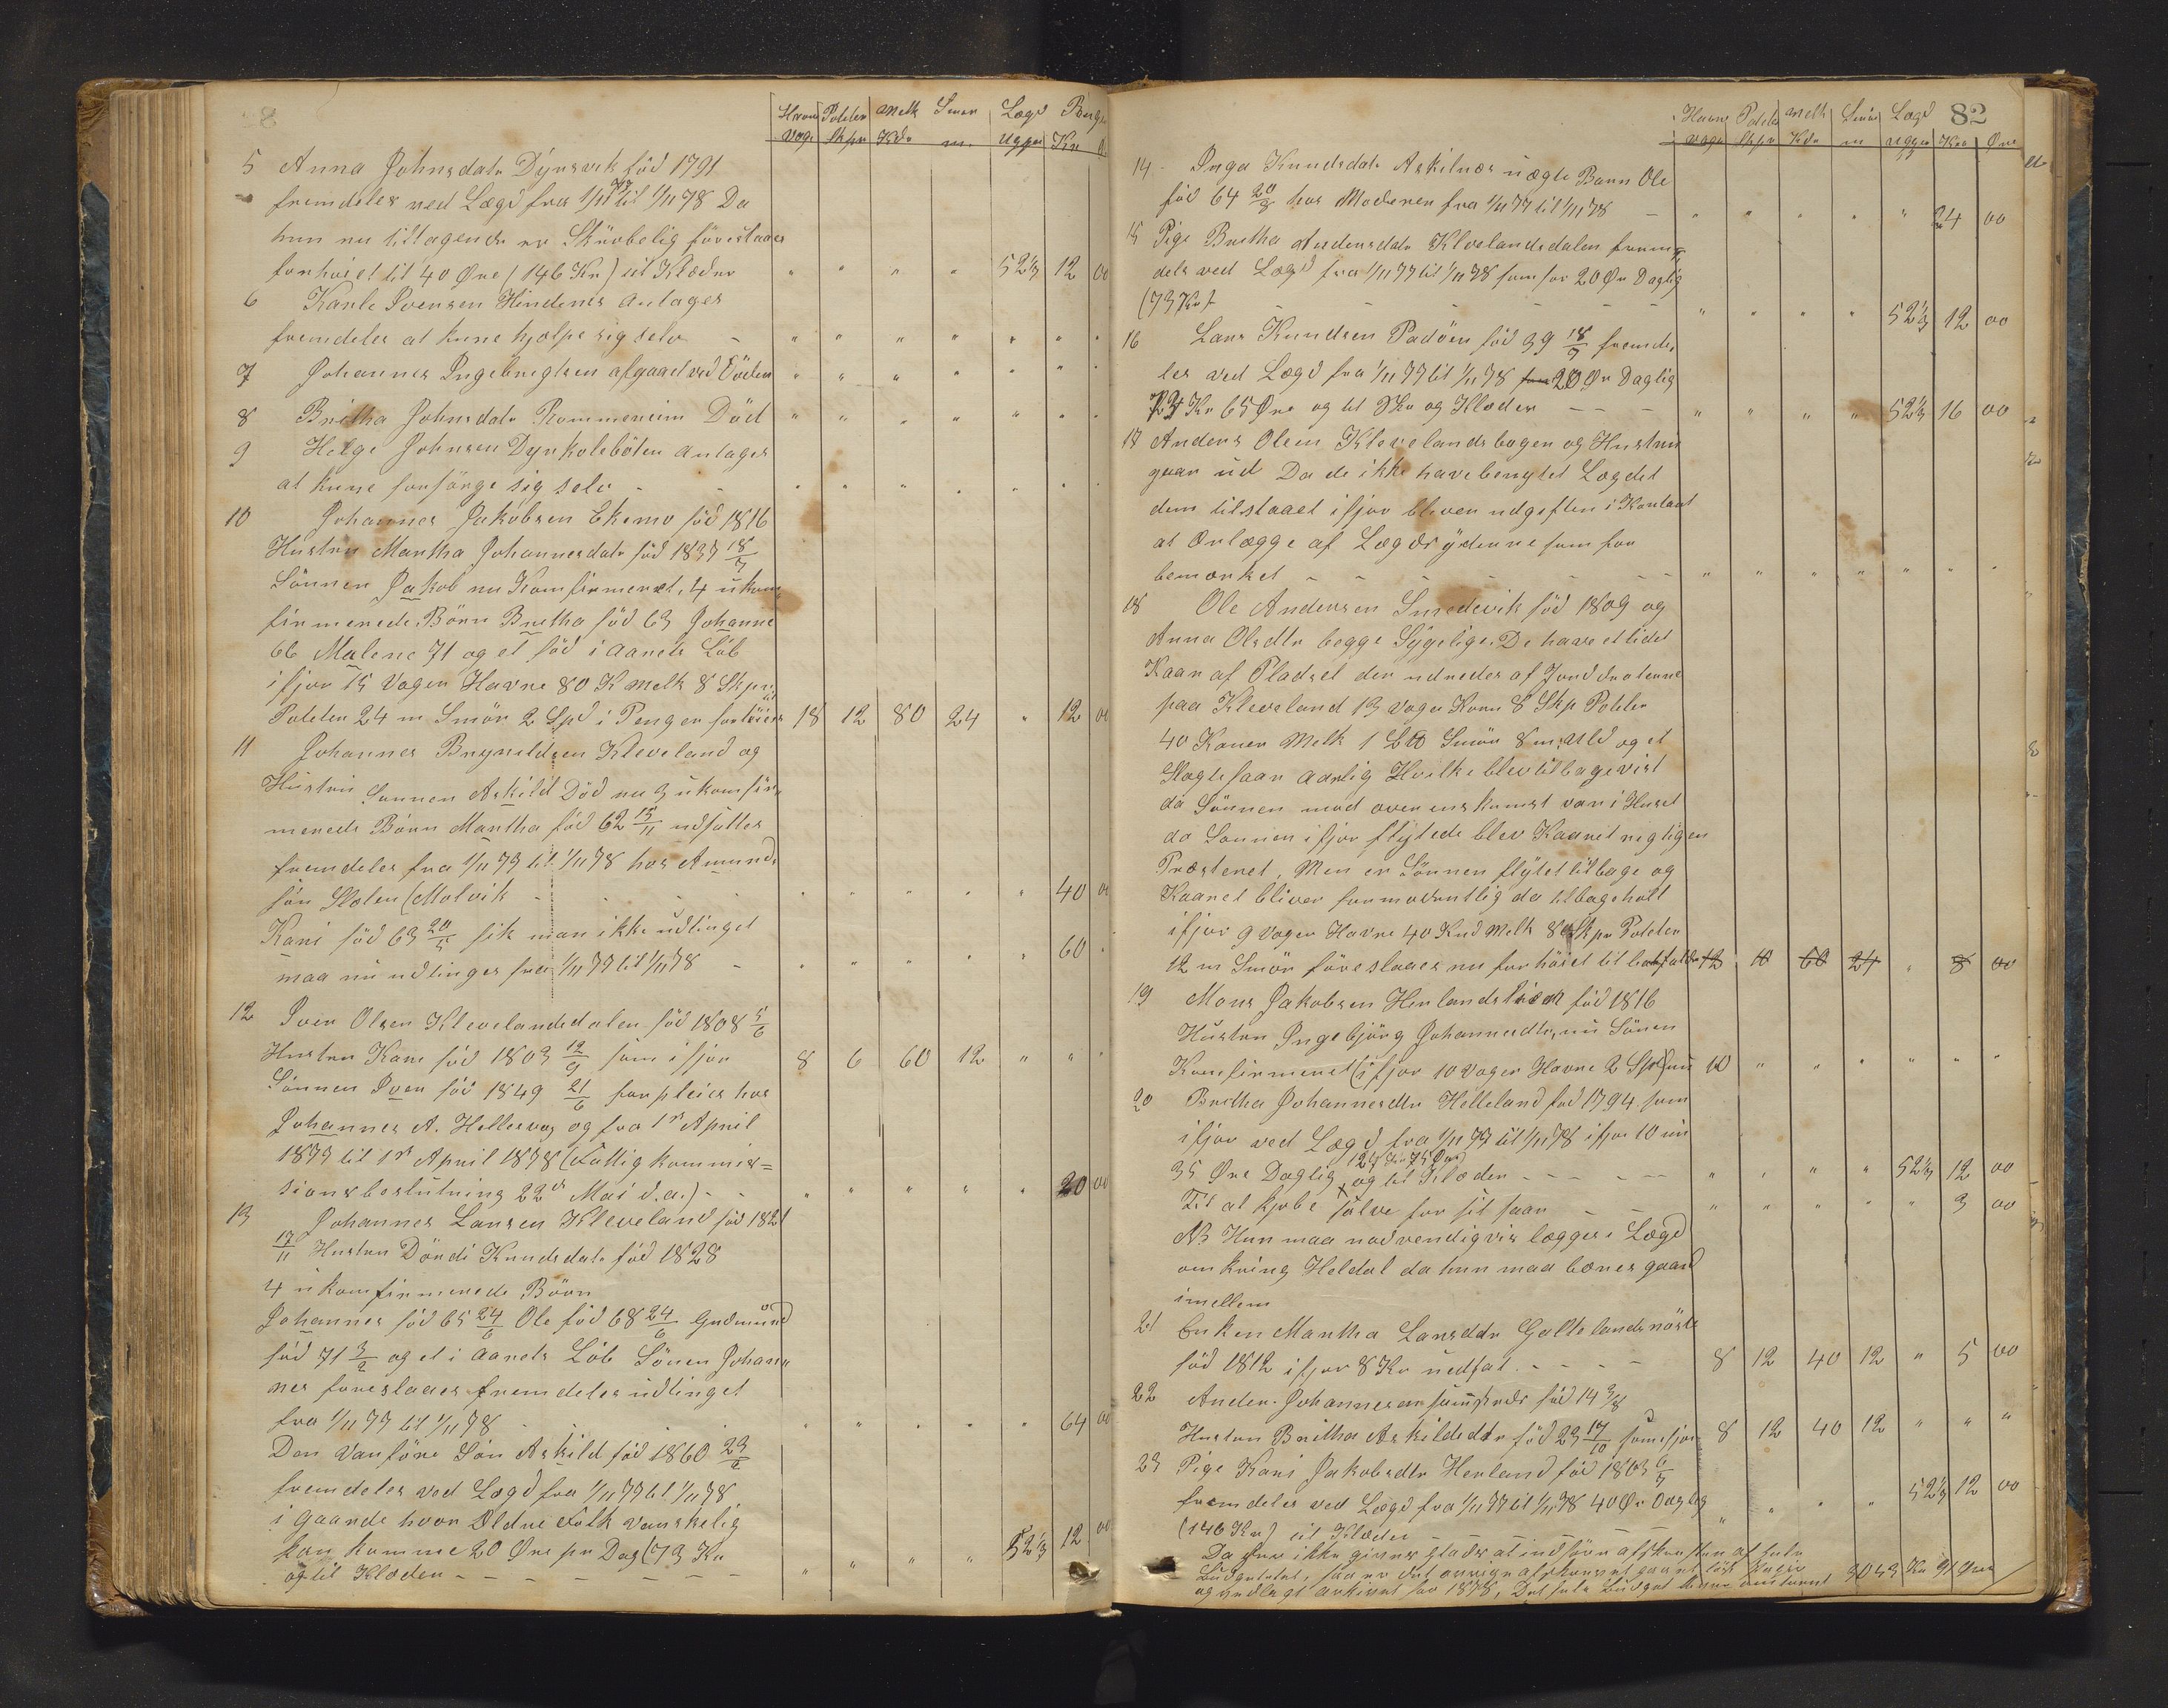 Havre Poteter Melk Smør Lægd Penge
Voge Skpr Kdr m. ugger Kr Ø
5 Anna Johnsdatr Dyrsvik föd 1791
fremdeles ved Lægd fra 1/11 77 til 1/11 78 Da
hun nu tiltagende er Skrøbelig föreslaaes
forhøiet til 40 Øre (146 Kr) til Klæder " " " " 52 1/3 12 00
6 Karle Iversen Hindenes antages
fremdeles at kune hjælpe sig selv - " " " " " " "
7 Johannes Ingebregtsen afgaaet ved Døden " " " " " " "
8 Britha Johnsdatr Rommereim Död " " " " " " "
9 Helge Johnsen Dyrkolsböten antages
at kune forsörge sig selv - - " " " " " " "
10 Johannes Jakobsen Ekemo föd 1816
Hustru Martha Johannesdatr föd 1837 18/7
Sönnen Jakob nu Konfirmeret, 4 ukon,
firmerede Börn Britha föd 63 Johanne
66 Malene 71 og et föd i Aarets Löb
ifjor 15 Voger Havre 80 K Melk 8 Skpr
Poteter 24 m Smör 2 Spd i Penger forhöies til 18 12 80 24 " 12 00
11 Johannes Brynildsen Kleveland og
Hustru Sønnen Askild Död nu 3 ukonfir,
merede Börn Martha föd 62 15/11 udsættes
fremdeles fra 1/11 77 til 1/11 78 hos Amund,
sön Stølen (Molvik - - - - " " " " " 40 00
Kari föd 63 20/5 fik man ikke udtinget
maa nu udtinges fra 1/11 77 til 1/11 78 - " " " " " 60 "
12 Iver Olsen Klevelandsdalen föd 1808 5/6
Hustru Kari föd 1803 12/9 som ifjor 8 6 60 12 " " "
Sönnen Iver föd 1849 21/6 forpleies hos
Johannes A. Hellesvog og fra 1st April
1877 til 1st April 1878 (Fattigkommis=
sionsbeslutning 22de Mai d.a.) - - " " " " " 20 00
13 Johannes Larsen Kleveland föd 1821
17/11 Hustru Dördi Knudsdatr föd 1828
4 ukonfirmerede Börn
Johannes föd 65 24/6 Ole föd 68 24/6 Gudmund
föd 71 3/2 og et i Aarets Löb Sönen Johan,
nes foreslaaes fremdeles udtinget
fra 1/11 77 til 1/11 78 - " " " " " 64 00
Den Vanföre Sön Askild föd 1860 23/2
fremdeles ved Lægd fra 1/11 77 til 1/11 78
i Gaarde hvor Ældre Folk vanskelig
kan komme 20 Øre pr Dag (73 Kr
og til Klæder - - - - - - " " " " 52 1/3 12 00
82
Havre Poteter Melk Smör Lægd
Voge Skpr Kdr m ugger Kro Øre
14 Inga Knudsdatr Askilnes uægte Barn Ole
föd 64 20/8 hos Moderen fra 1/11 77 til 1/11 78 - " " " " " 24 00
15 Pige Britha Andersdatr Klevelandsdalen frem,
deles ved Lægd fra 1/11 77 til 1/11 78 som for 20 Ør Daglig
(73 Kr) - - - - - " " " " 52 1/3 12 00
16 Lars Knudsen Padöen föd 39 18/7 fremde,
les ved Lægd fra 1/11 77 til 1/11 78 20 Ør Daglig
Kr 65 Øre og til Sko og Klæder - - - " " " " 52 1/3 16 00
17 Anders Olsen Klevelandsbogen og Hustru
gaar ud Da de ikke have benyttet Lægdet
dem tilstaaet ifjor bliver udgiften i Kontant
at Ærlægge af Lægdsyderne som för
bemærket - - - - - - " " " " " " "
18 Ole Andersen Smedevik föd 1809 og
Anna Olsdtr begge Sÿgelige. De have et lidet
Kaar af Pladset der udredes af Jorddroterne
paa Kleveland 13 Voger Korn 8 Skp Poteter
40 Kaner Melk 1 L℔ Smör 8 m, Uld og et
Slagtefaar aarlig Hvilke blev tilbagevist
da Sönnen mod overenskomst var i Huset
da Sönnen ifjor flÿtede blev Kaaret rigtigen
Præsteret, Men er Sönnen flÿtet tilbage og
Kaaret bliver formodentlig da tilbageholt
ifjor 9 Voger Havre 40 Knd Melk 8 Skpr Poteter
12 m Smör föreslaaes nu forhöiet til 12 10 60 24 " 8 00
19 Mons Jakobsen Herlandsliden föd 1816
Hustru Ingebjörg Johannesdtr, nu Sönen
Konfirmeret (ifjor 10 Voger Havre 2 Spd) nu 10 " " " " " "
20 Britha Johannesdtr Helleland föd 1794 som
ifjor ved Lægd fra 1/11 77 til 1/11 78 ifjor 10 nu
35 Øre Daglig (127 Kr 75 Øre) og til Klæder - - - - " " " " 52 1/3 12 00
Til at kjøbe salve for sit saar - - " " " " " 3 00
NB Hun maa nødvendigvis lægges i Lægd
omkring Heldal da hun maa bæres gaard
imellem
21 Enken Martha Larsddr Galtelandsnöste
föd 1812 ifjor 8 Kr nedsat. - - - - 8 12 40 12 " 5 00
22 Anders Johannesen föd 14 3/8
Hustru Britha Askildsdtr föd 23 17/10 som ifjor 8 12 40 12 " " "
23 Pige Kari Jakobsdtr Herland föd 1863 6/7
fremdeles ved Lægd fra 1/11 77 til 1/11 78 40 Ør Daglig
(146 Kr) til Klæder - - - - " " " " 52 1/3 12 00
Da her ikke gives Plads at indföre afskriften af hele
Budgettet, saa er det övrige afskrevet paa et löst Papir
og nedlagt arkivet for 1878, Det hele Budget 3043 Kr 91 Øre